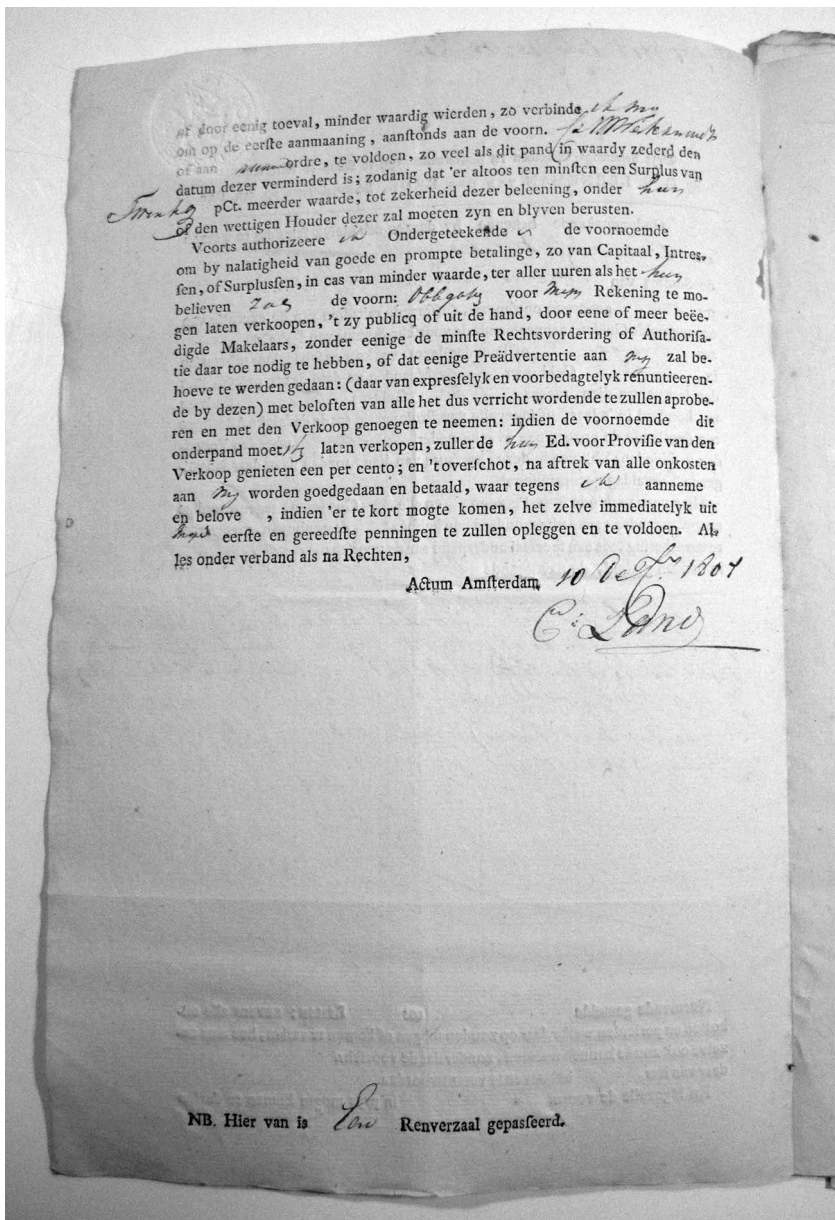 of door eenig toeval, minder waardig wierden, zo verbinde ik my
om op de eerſte aanmaaning, aanſtonds aan de voorn.
of aan ordre, te voldoen, zo veel als dit pand in waardy zederd den
datum dezer verminderd is; zodanig dat 'er altoos ten minſten een Surplus van
Twintig pCt. meerder waarde, tot zekerheid dezer beleening, onder hun
of den wettigen Houder dezer zal moeten zyn en blyven beruſten.
Voorts authorizeere ik Ondergeteekende de voornoemde
om by nalatigheid van goede en prompte betalinge, zo van Capitaal, Intres-
ſen, of Surplusſen, in cas van minder waarde, ter aller uuren als het hun
believen zal de voorn: voor Myn Rekening te mo-
gen laten verkoopen, 't zy publicq of uit de hand, door eene of meer beëe-
digde Makelaars, zonder eenige de minſte Rechtsvordering of Authoriſa-
tie daar toe nodig te hebben, of dat eenige Preädvertentie aan my zal be-
hoeve te werden gedaan: (daar van expresſelyk en voorbedagtelyk renuntieeren-
de by dezen) met beloften van alle het dus verricht wordende te zullen aprobe-
ren en met den Verkoop genoegen te neemen: indien de voornoemde dit
onderpand moet laten verkopen, zuller de hun Ed. voor Proviſie van den
Verkoop genieten een per cento; en 't overſchot, na aftrek van alle onkosten
aan my worden goedgedaan en betaald, waar tegens ik aanneme
en belove , indien 'er te kort mogte komen, het zelve immediatelyk uit
eerſte en gereedſte penningen te zullen opleggen en te voldoen. Al-
les onder verband als na Rechten,
Actum Amſterdam 10 1807
NB. Hier van is Een Renverzaal gepasſeerd.